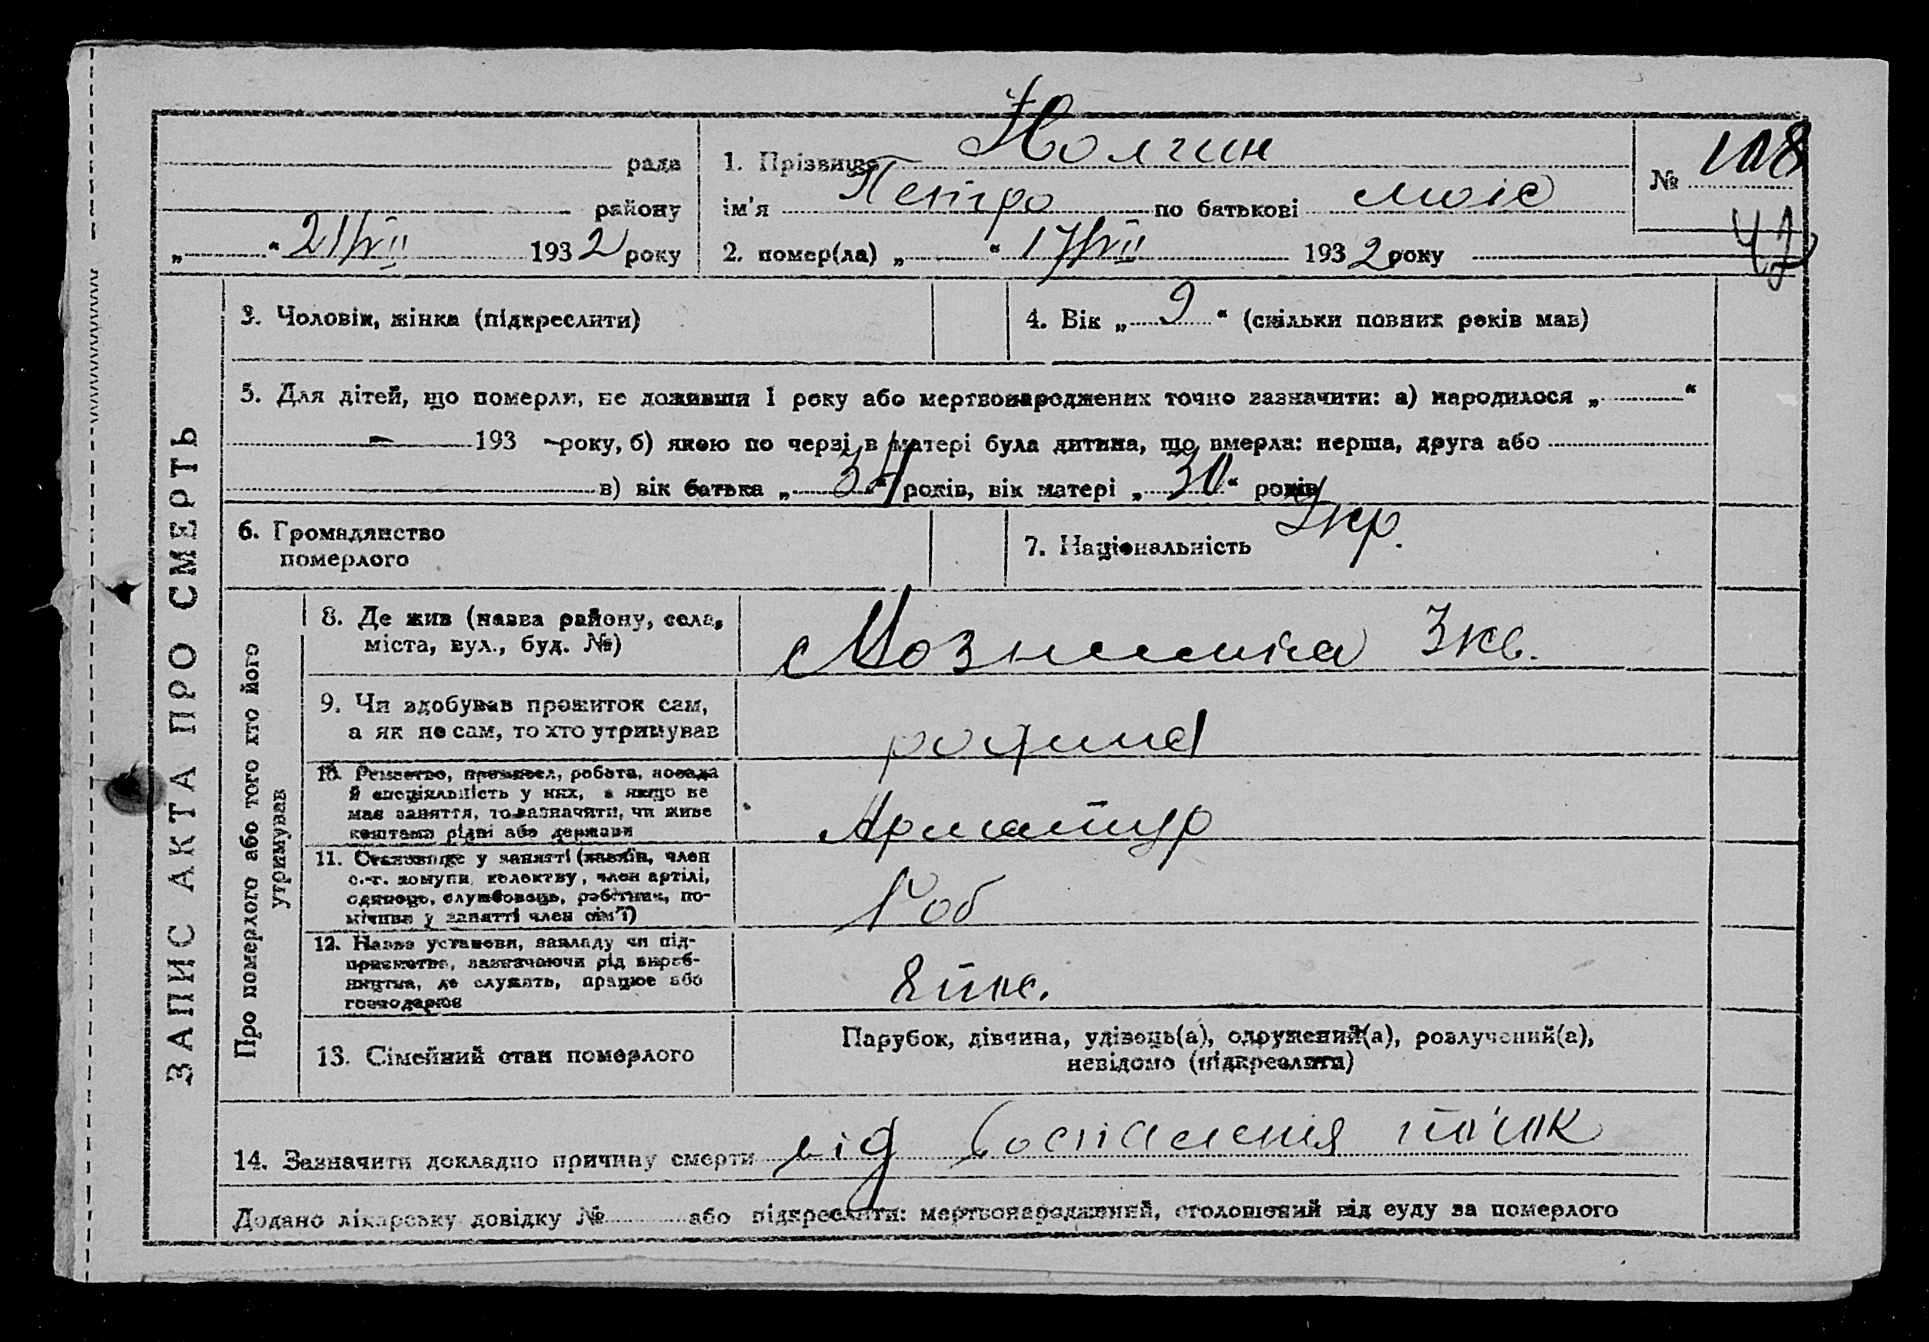 ЗАПИС АКТА ПРО СМЕРТЬ
рада
району
„ “ 21/VII 1932 року
1. Прізвище
ім'я Петро по батькові
2. помер(ла) „ “ 17/VII 1932 року
№ 108
42
3. Чоловік, жінка (підкреслити)
4. Вік „ “ (скільки повних років мав)
5. Для дітей, що померли, не доживши 1 року або мертвонароджених точно зазначити: а) народилося „ “
193 року, б) якою по черзі в матері була дитина, що вмерла: перша, друга або
в) вік батька „34“ років, вік матері „30“ років
6. Громадянство
померлого
7. Національність Укр.
Про померлого або того хто його
утримував
8. Де жив (назва району, села,
міста, вул., буд. №)
3 кв.
9. Чи здобував прожиток сам,
а як не сам, то хто утримував
родина
10. Ремество, промисел, робота, посада
й спеціяльність у них, а якщо не
має заняття, то зазначити, чи живе
коштами рідні або держави
Арматур
11. Становище у занятті (хазяїн, член
с.-г. комуни, колективу, член артілі,
одинець, службовець, робітник, по-
мічник у занятті член сім'ї)
Роб
12. Назва установи, закладу чи під-
приємства, зазначаючи рід вироб-
ництва, де служить, працює або
господарює
13. Сімейний стан померлого
Парубок, дівчина, удівець(а), одружений(а), розлучений(а),
невідомо (підкреслити)
14. Зазначити докладно причину смерти від
Додано лікарську довідку № або підкреслити: мертвонароджений, оголошений від суду за померлого